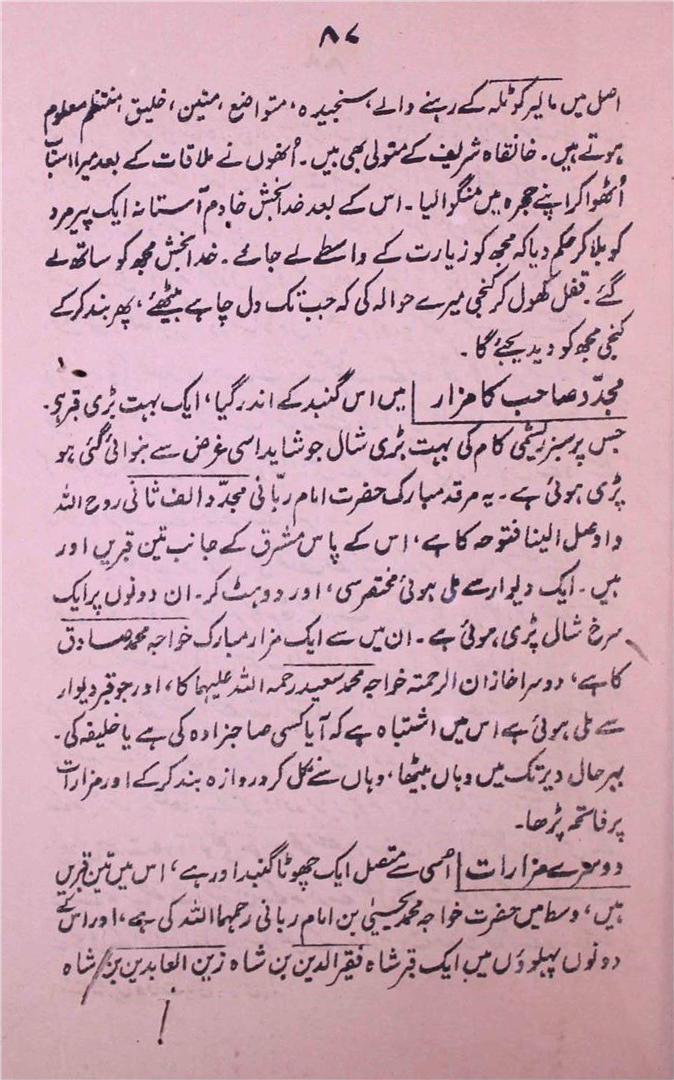 ۸۷
اصل میں مالیر کوٹلہ کے رہنے والے، سنجیدہ، متواضع، متین، خلیق، منتظم معلوم
ہوتے ہیں۔ خانقاہ شریف کے متولی بھی ہیں۔ اُنھوں نے ملاقات کے بعد میرا اسباب
اُٹھوا کر اپنے حجرہ میں منگوا لیا۔ اس کے بعد خدا بخش خادم آستانہ ایک پیر مرد
کو بلا کر حکم دیا کہ مجھ کو زیارت کے واسطے لے جائے۔ خدا بخش مجھ کو ساتھ لے
گئے۔ قفل کھول کر کنجی میرے حوالہ کی کہ جب تک دل چاہے بیٹھئے، پھر بند کر کے
کنجی مجھ کو دیدیجئے گا۔
مجدّد صاحب کا مزار | میں اس گنبد کے اندر گیا، ایک بہت بڑی قبر ہے۔
جس پر سبز ریشمی کام کی بہت بڑی شال جو شاید اسی غرض سے بنوائی گئی ہو
پڑی ہوئی ہے۔ یہ مرقد مبارک حضرت امام ربّانی مجدّد الف ثانی روح اللہ
واوصل الینا فتوحہ کا ہے، اس کے پاس مشرق کے جانب تین قبریں اور
ہیں۔ ایک دیوار سے ملی ہوئی مختصر سی، اور دو ہٹ کر۔ ان دونوں پر ایک
سرخ شال پڑی ہوئی ہے۔ ان میں سے ایک مزار مبارک خواجہ محمد صادق
کا ہے، دوسرا خازن الرحمتہ خواجہ محمد سعید رحمہ اللہ علیہما کا، اور جو قبر دیوار
سے ملی ہوئی ہے اس میں اشتباہ ہے کہ آیا کسی صاحبزادہ کی ہے یا خلیفہ کی۔
بہر حال دیر تک میں وہاں بیٹھا، وہاں سے نکل کر دروازہ بند کر کے اور مزارات
پر فاتحہ پڑھا۔
دوسرے مزارات | اسی سے متصل ایک چھوٹا گنبد اور ہے، اس میں تین قبریں
ہیں، وسط میں حضرت خواجہ محمد یحییٰ بن امام ربانی رحمہما اللہ کی ہے، اور اس کے
دونوں پہلوؤں میں ایک قبر شاہ فقیر الدین بن شاہ زین العابدین بن شاہ